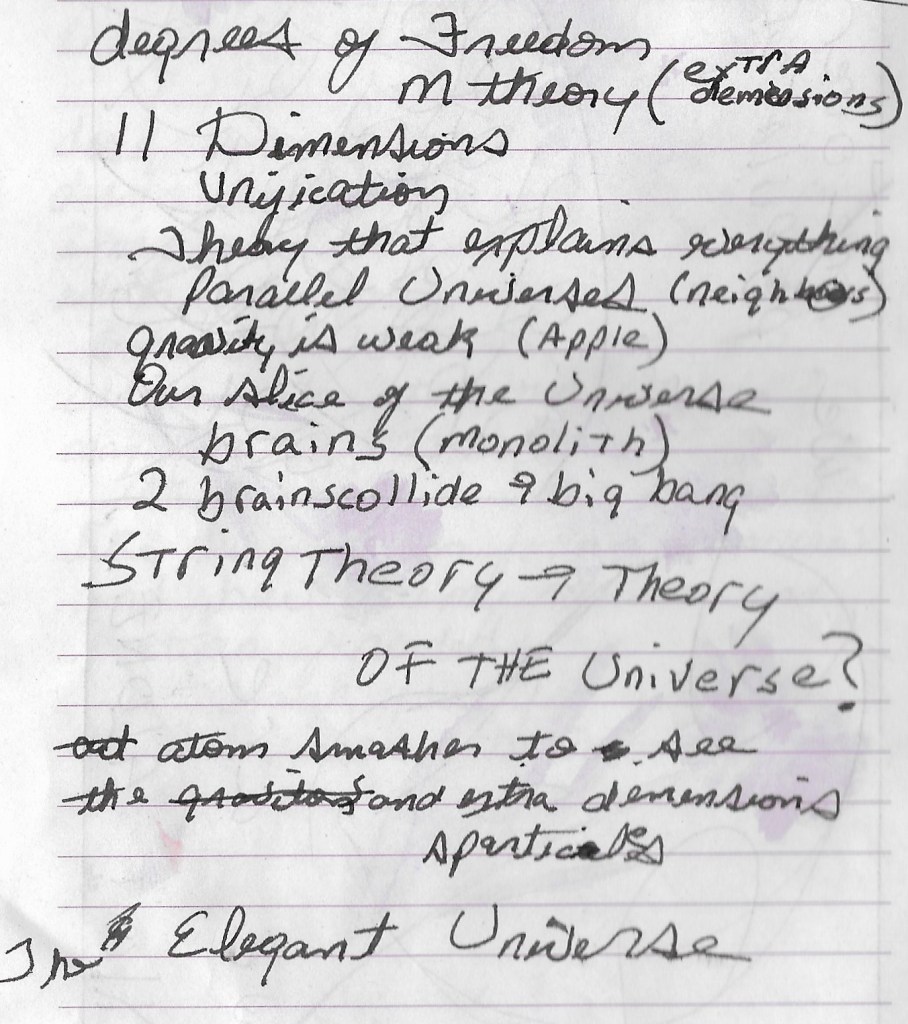 degrees of Freedom
M theory (extra demensions)
11 Dimensions
Unification
Theory that explains everything
Parallel Universes (neighbors)
gravity is weak (Apple)
Our slice of the Universe
brains (monolith)
2 brainscollide → big bang
String Theory → Theory
OF THE Universe?
out atom smasher to see
the gravitons and extra demensions
sparticles
The Elegant Universe